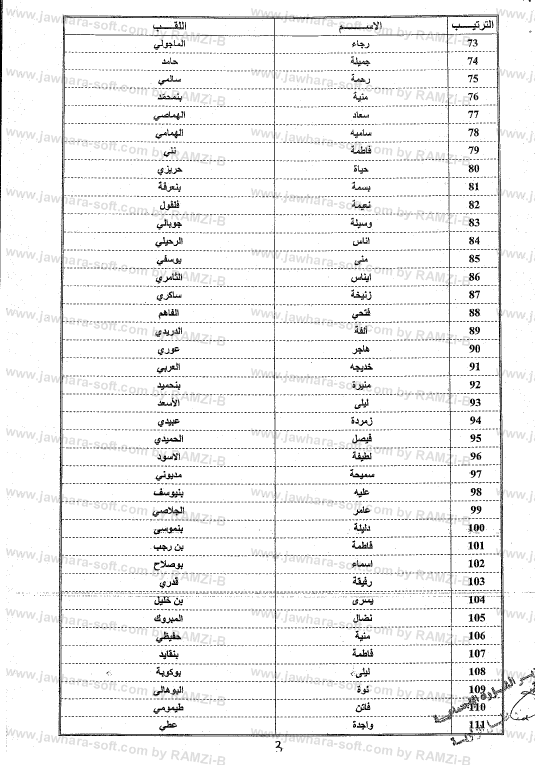 الترتيب الاسم اللقب
73 رجاء الماجولي
74 جميلة حامد
75 رحمة سالمي
76 منية بنمحمد
77 سعاد الهماصي
78 ساميه الهمامي
79 فاطمة نني
80 حياة حريزي
81 بسمة بنعرفة
82 نعيمة فلفول
83 وسيلة جوبالي
84 اناس الرحيلي
85 منى يوسفي
86 ايناس الثامري
87 زنيخة ساكري
88 فتحي الفاهم
89 ألفة الدريدي
90 هاجر عوري
91 خديجه العربي
92 منيرة بنحميد
93 ليلى الأسعد
94 زمردة عبيدي
95 فيصل الحميدي
96 لطيفة الاسود
97 سميحة مديوني
98 عليه بنيوسف
99 عامر الجلاصي
100 دليلة بنموسى
101 فاطمة بن رجب
102 اسماء بوصلاح
103 رفيقة قدري
104 يسرى بن خليل
105 نضال المبروك
106 منية حفيظي
107 فاطمة بنقايد
108 ليلى بوكوبة
109 نوة البوهالي
110 فاتن طيمومي
111 واجدة عطي
3
www.jawhara-soft.com by RAMZI-B